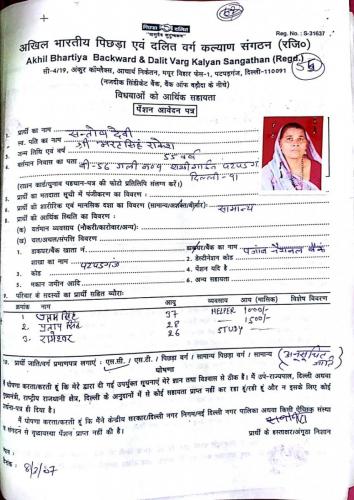 पिछड़ा दलित
Reg. No. : S-31637
अखिल भारतीय पिछड़ा एवं दलित वर्ग कल्याण संगठन (रजि०)
Akhil Bhartiya Backward & Dalit Varg Kalyan Sangathan (Regd.)
सी-4/19, अंकुर कॉम्पलैक्स, आचार्य निकेतन, मयूर विहार फेस-1, पटपड़गंज, दिल्ली-110091
(नजदीक सिंडीकेट बैंक, बैंक ऑफ बड़ौदा के नीचे)
विधवाओं को आर्थिक सहायता
पेंशन आवेदन पत्र
1. प्रार्थी का नाम सन्तोष देवी
2. स्व. पति का नाम श्री भरत सिंह
3. जन्म तिथि एवं वर्ष 55 वर्ष
4. वर्तमान निवास का पता सी-56 गली न०५
दिल्ली-91
(राशन कार्ड/चुनाव पहचान-पत्र की फोटो प्रतिलिपि संलग्न करें।)
5. प्रार्थी का मतदाता सूची में पंजीकरण का विवरण :
6. प्रार्थी की शारीरिक एवं मानसिक दशा का विवरण (सामान्य/अशक्त/बीमार): सामान्य
7. प्रार्थी की आर्थिक स्थिति का विवरण :
(क) वर्तमान व्यवसाय (नौकरी/कारोबार/अन्य):
(ख) चल/अचल/संपत्ति विवरण
1. डाकघर/बैंक खाता नं. डाकघर/बैंक का नाम पंजाब नैशनल बैंक
शाखा का नाम पटपड़गंज 2. डेस्टीनेशन कोड
3. कोड 4. पेंशन यदि है
5. मकान जमीन आदि 6. अन्य सहायता
9. परिवार के सदस्यों का प्रार्थी सहित ब्यौरा:
नाम आयु व्यवसाय आय (मासिक) विशेष विवरण
1 सिंह 37 HELPER 1000/-
2. प्रताप सिंह 28 1500/-
3. रामेश्वर 26 STUDY
10. प्रार्थी जाति/वर्ग प्रमाणपत्र लगाएं : एस.सी. / एस.टी. / पिछड़ा वर्ग / सामान्य पिछड़ा वर्ग / सामान्य (अनुसूचित जाति)
घोषणा
मैं घोषणा करता/करती हूं कि मेरे द्वारा दी गई उपर्युक्त सूचनाएं मेरे ज्ञान तथा विश्वास से ठीक है। मैं उप-राज्यपाल, दिल्ली अथवा
प्रधानमंत्री, राष्ट्रीय राजधानी क्षेत्र, दिल्ली के अनुदानों में से कोई सहायता प्राप्त नहीं कर रहा हूं/रही हूं और न इसके लिए कोई
प्रार्थना-पत्र ही दिया है।
मैं घोषणा करता/करती हूं कि मैंने केन्द्रीय सरकार/दिल्ली नगर निगम/नई दिल्ली नगर पालिका अथवा किसी ऐच्छिक संस्था
व संगठन से वृद्धावस्था पेंशन प्राप्त नहीं की है।
प्रार्थी के हस्ताक्षर/अंगूठा निशान